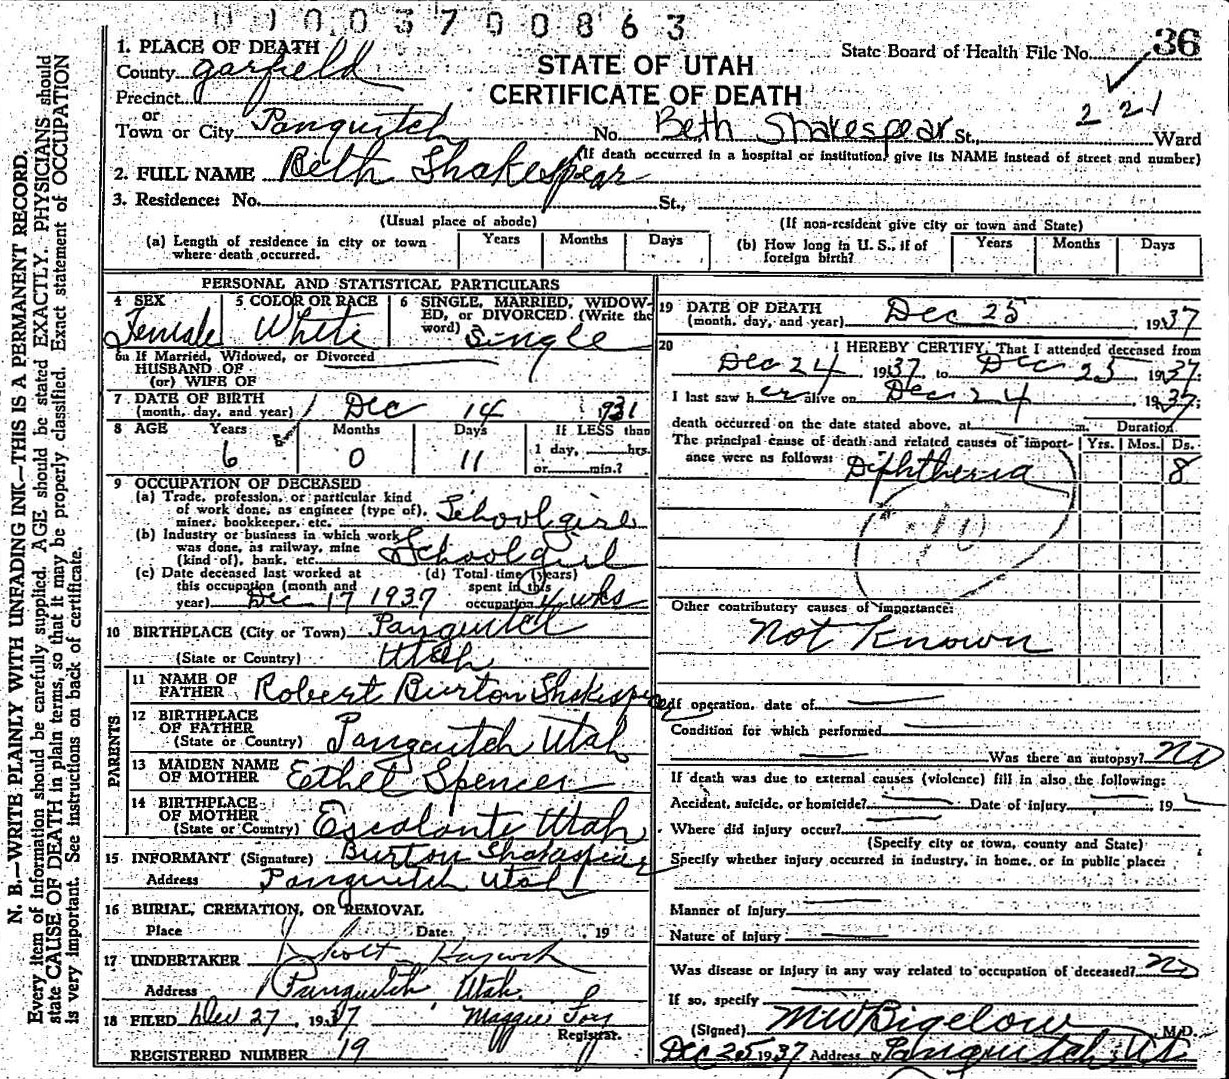 0003700863
1. PLACE OF DEATH
County Garfield
Precinct
or
Town or City Panguitch
STATE OF UTAH
CERTIFICATE OF DEATH
State Board of Health File No. 36
2 21
No. Beth Shakespear St., Ward
(If death occurred in a hospital or institution, give its NAME instead of street and number)
2. FULL NAME Beth Shakespear
3. Residence: No. St.,
(Usual place of abode) (If non-resident give city or town and State)
(a) Length of residence in city or town where death occurred. Years Months Days
(b) How long in U. S., if of foreign birth? Years Months Days
N. B.—WRITE PLAINLY WITH UNFADING INK—THIS IS A PERMANENT RECORD.
Every item of information should be carefully supplied. AGE should be stated EXACTLY. PHYSICIANS should
state CAUSE OF DEATH in plain terms, so that it may be properly classified. Exact statement of OCCUPATION
is very important. See instructions on back of certificate.
PERSONAL AND STATISTICAL PARTICULARS
4 SEX Female
5 COLOR OR RACE White
6 SINGLE, MARRIED, WIDOWED, or DIVORCED. (Write the word) Single
6a If Married, Widowed, or Divorced
HUSBAND OF
(or) WIFE OF
7 DATE OF BIRTH
(month, day, and year) Dec 14 1931
8 AGE Years 6 Months 0 Days 11 If LESS than
1 day, hrs.
or min.?
9 OCCUPATION OF DECEASED
(a) Trade, profession, or particular kind
of work done, as engineer (type of),
miner, bookkeeper, etc. School girl
(b) Industry or business in which work
was done, as railway, mine
(kind of), bank, etc. School girl
(c) Date deceased last worked at
this occupation (month and
year) Dec 17 1937
(d) Total time (years)
spent in this
occupation 4 wks
10 BIRTHPLACE (City or Town) Panguitch
(State or Country) Utah
PARENTS
11 NAME OF
FATHER Robert Burton Shakespear
12 BIRTHPLACE
OF FATHER
(State or Country) Panguitch Utah
13 MAIDEN NAME
OF MOTHER Ethel Spencer
14 BIRTHPLACE
OF MOTHER
(State or Country) Escalante Utah
15 INFORMANT (Signature) Burton Shakespear
Address Panguitch Utah
16 BURIAL, CREMATION, OR REMOVAL
Place Date , 19
17 UNDERTAKER
Address Panguitch Utah
18 FILED Dec 27, 1937 Maggie Foy
Registrar.
REGISTERED NUMBER 19
19 DATE OF DEATH
(month, day, and year) Dec 25, 1937
20 I HEREBY CERTIFY, That I attended deceased from
Dec 24, 1937, to Dec 25, 1937;
I last saw her alive on Dec 24, 1937;
death occurred on the date stated above, at m. Duration
The principal cause of death and related causes of importance were as follows: Yrs. Mos. Ds.
Diphtheria 8
10
Other contributory causes of importance:
Not Known
If operation, date of
Condition for which performed
Was there an autopsy? No
If death was due to external causes (violence) fill in also the following:
Accident, suicide, or homicide? Date of injury , 19
Where did injury occur?
(Specify city or town, county and State)
Specify whether injury occurred in industry, in home, or in public place:
Manner of injury
Nature of injury
Was disease or injury in any way related to occupation of deceased? No
If so, specify
(Signed) MW Bigelow M.D.
Dec 25 1937 Address Panguitch, Ut